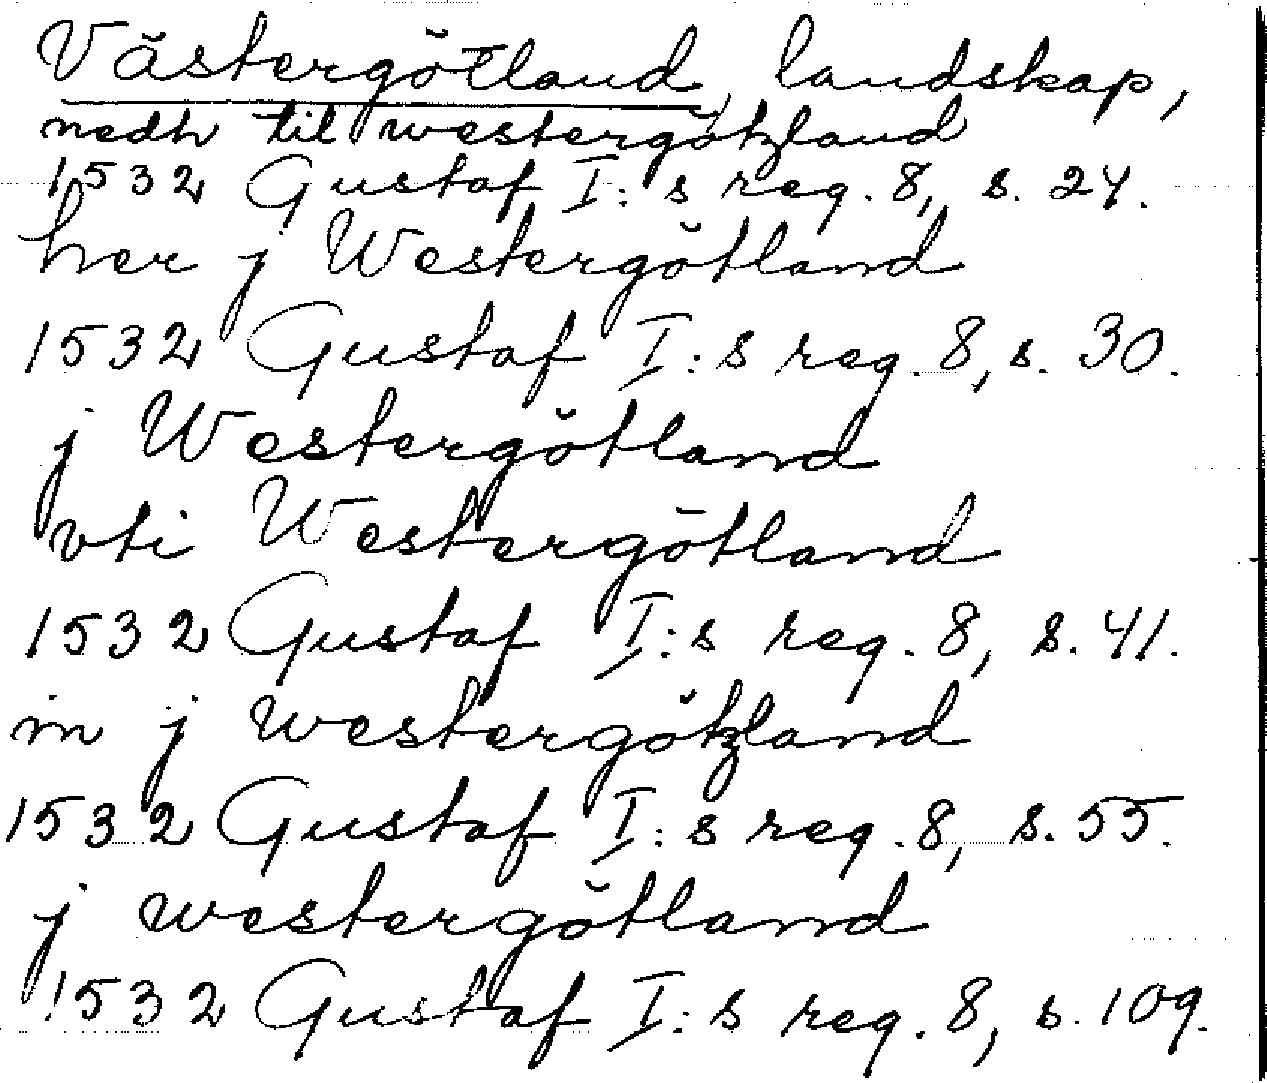 Västergötland, landskap,
nedh til westergötzland
1532 Gustaf I:s reg. 8, s. 24.
her j Westergötland
1532 Gustaf I:s reg. 8, s. 30.
j Westergötland
vti Westergötland
1532 Gustaf I:s reg. 8, s. 41.
in j westergötzland
1532 Gustaf I:s reg. 8, s. 55.
j westergötland
1532 Gustaf I:s reg. 8, s. 109.